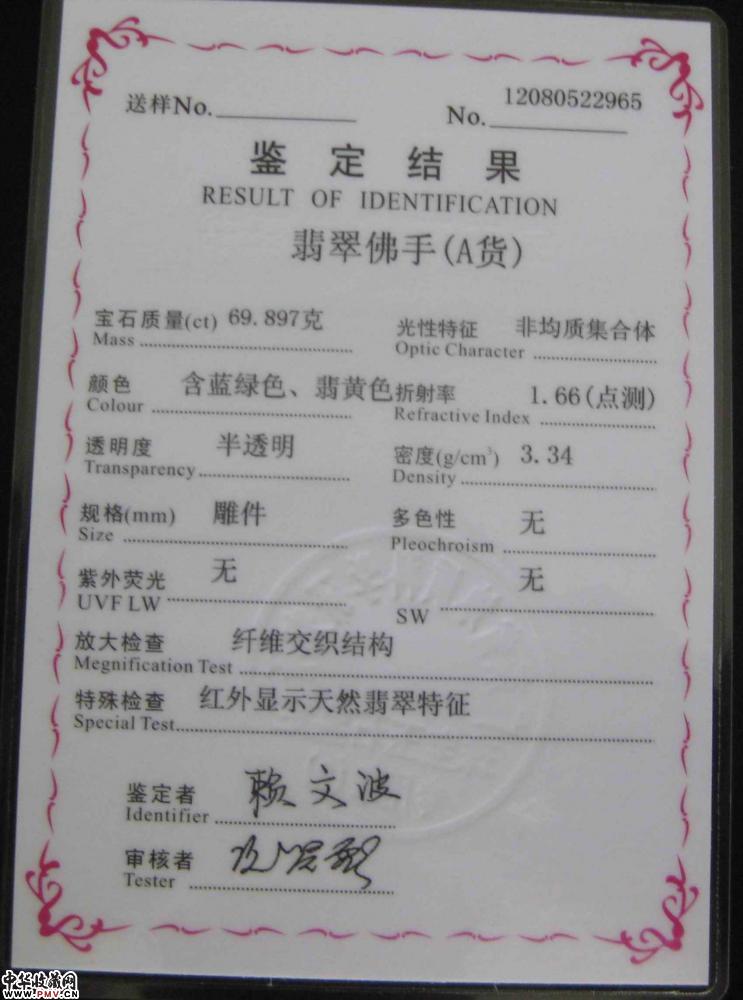 送样No. No. 12080522965
鉴 定 结 果
RESULT OF IDENTIFICATION
翡翠佛手(A货)
宝石质量(ct) 69.897克 光性特征 非均质集合体
Mass Optic Character
颜色 含蓝绿色、翡黄色 折射率 1.66(点测)
Colour Refractive Index
透明度 半透明 密度(g/cm³) 3.34
Transparency Density
规格(mm) 雕件 多色性 无
Size Pleochroism
紫外荧光 无 无
UVF LW SW
放大检查 纤维交织结构
Megnification Test
特殊检查 红外显示天然翡翠特征
Special Test
鉴定者 赖文波
Identifier
审核者
Tester
中华收藏网
www.PMV.CN